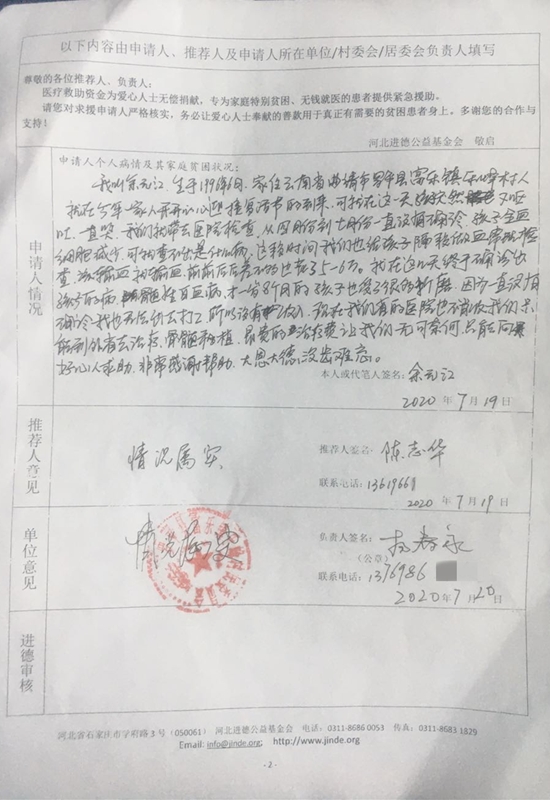 以下内容由申请人、推荐人及申请人所在单位/村委会/居委会负责人填写
尊敬的各位推荐人、负责人:
医疗救助资金为爱心人士无偿捐献,专为家庭特别贫困、无钱就医的患者提供紧急援助。
请您对求援申请人严格核实,务必让爱心人士奉献的善款用于真正有需要的贫困患者身上,多谢您的合作与
支持!
河北进德公益基金会 敬启
申请人情况
申请人个人病情及其家庭贫困状况:
我叫余元江,生于1991年6月,家住云南省曲靖市罗平县富乐镇 村人
我在今年一家人开开心心迎接 节的到来,可我在这一天 又呕
吐,一直哭,我们就带去医院检查,从四月份到七月份一直没有确诊,孩子全血
细胞减少,可就查不出是什么病,这段时间我们也给孩子隔 做血常规检
查,该输血就输血,前前后后差不多也花了5-6万。我在这几天终于确诊出
孩子的病, 白血病,才一岁8个月的孩子也受了很多的折磨,因为一直没有
确诊我也无法去打工所以没有收入,现在我们有的医院也不 我们只
能到外省去治疗,骨髓移植,昂贵的治疗费让我们无可奈何,只能向
好心人求助,非常感谢帮助,大恩大德,没齿难忘。
本人或代笔人签名:余元江
2020年7月19日
推荐人意见
情况属实
推荐人签名:陈志华
联系电话:1361966
2020年7月19日
单位意见
情况属实
负责人签名:
(公章)
联系电话:1376986
2020年7月20日
进德审核
河北省石家庄市学府路3号(050061) 河北进德公益基金会 电话:0311-8686 0053 传真:0311-8683 1829
Email: info@jinde.org; http://www.jinde.org
- 2 -